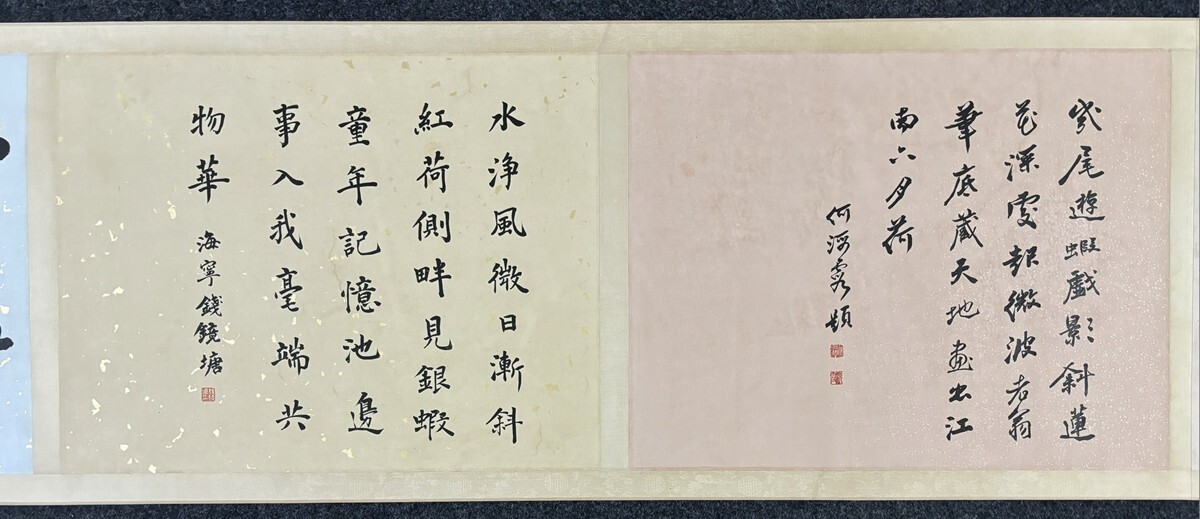 幾尾遊蝦戲影斜蓮
花深處起微波老翁
筆底藏天地畫出江
南六月荷
何海霞題
水淨風微日漸斜
紅荷側畔見銀蝦
童年記憶池邊
事入我毫端共
物華
海寧錢鏡塘